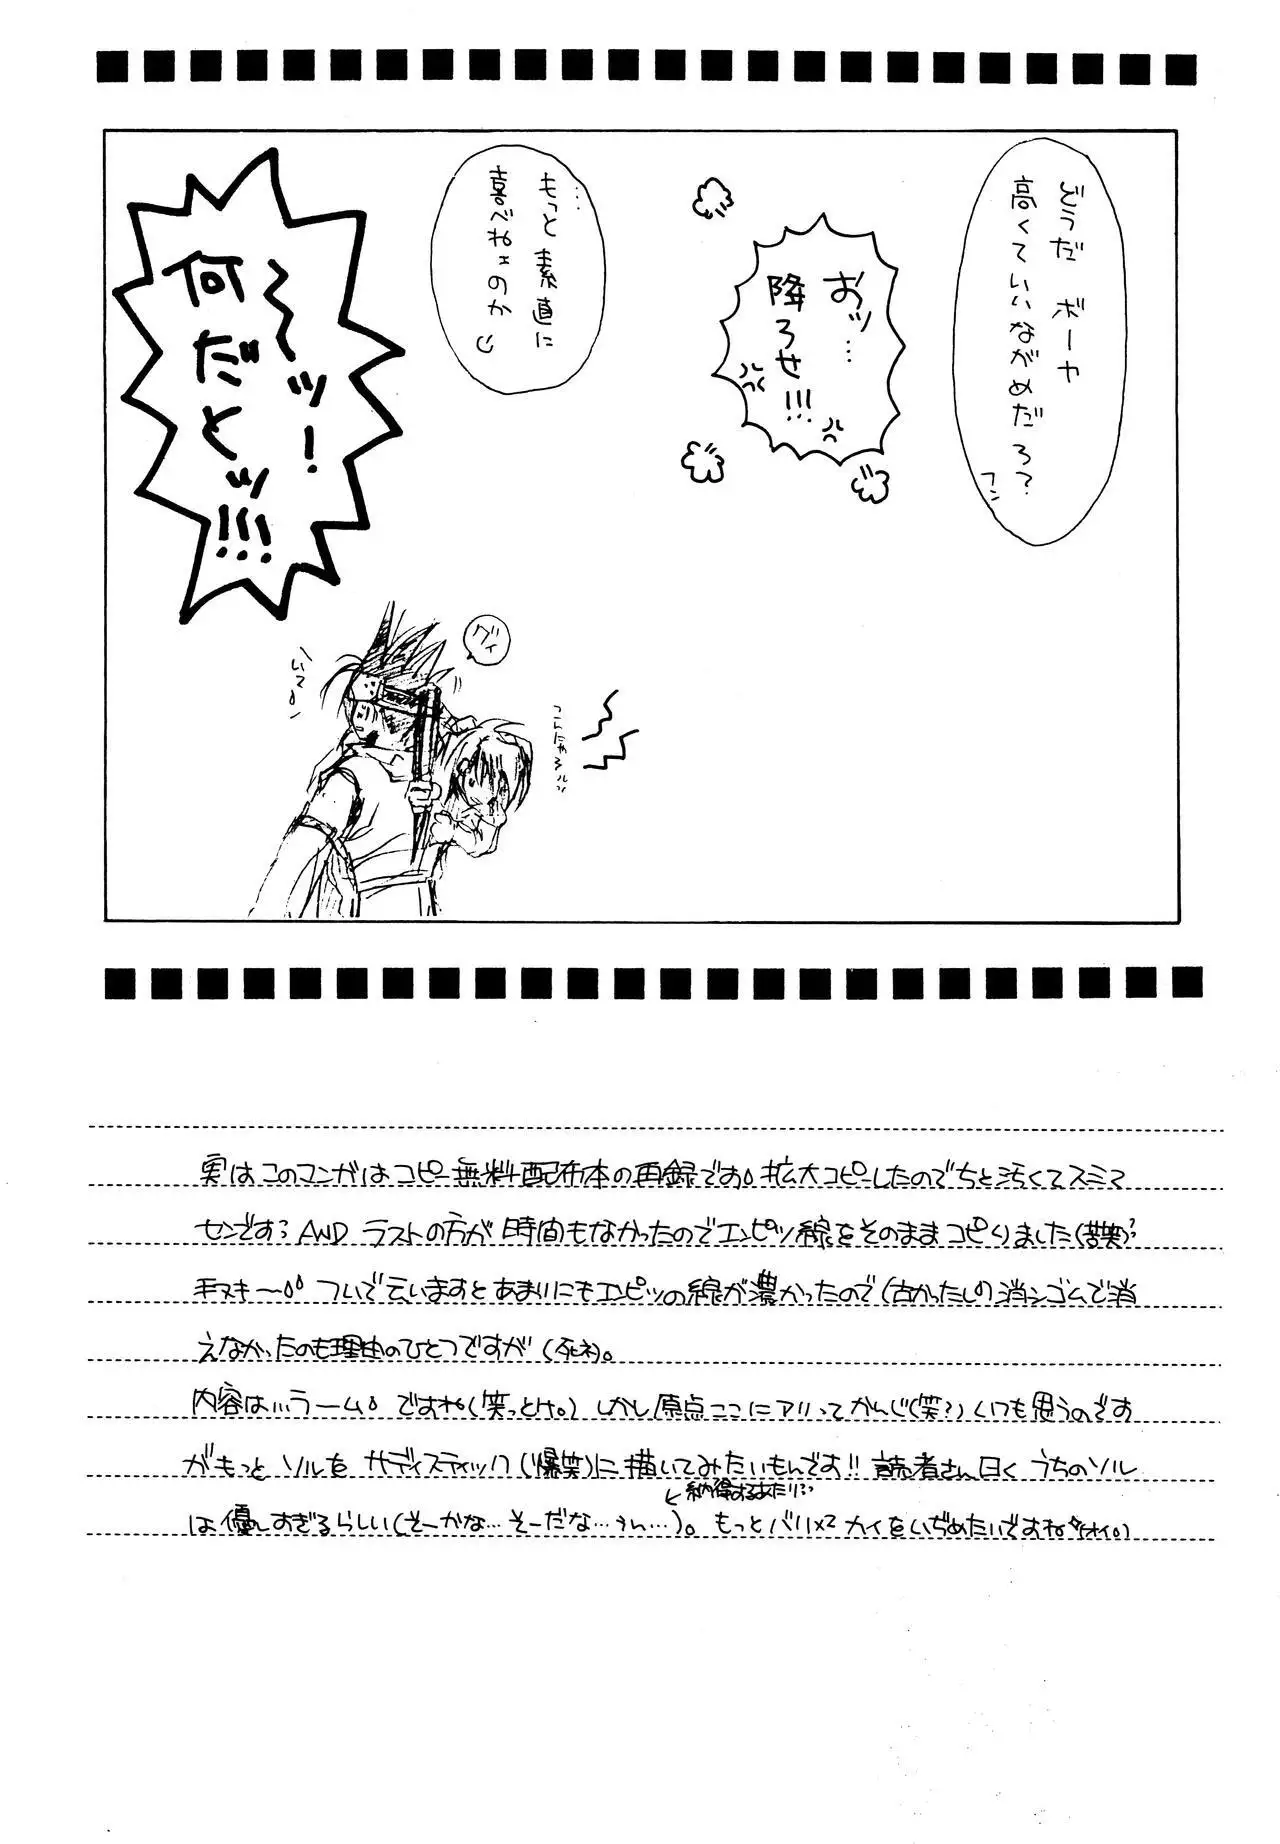 どうだ ボーヤ
高くていいながめだろ?
フン
おッ…
降ろせ!!!
…もっと素直に
喜べねェのか
〜〜ッ!
何だとッ!!!
グイ
いて
こんにゃろ
実はこのマンガはコピー無料配布本の再録です。拡大コピーしたのでちと汚くてスミマ
センです? AND ラストの方が時間もなかったのでエンピツ線をそのままコピりました(苦笑)?
手ヌキ〜 ついで云いますとあまりにもエンピツの線が濃かったので(古かったし)消シゴムで消
えなかったのも理由のひとつですが(死ネ)。
内容は…うーむ ですね(笑っとけ。) しかし原点ここにアリってかんじ(笑?) いつも思うのです
がもっとソルをサディスティック(爆笑)に描いてみたいもんです!! 読者さん曰くうちのソル
納得するあたり…
は優しすぎるらしい(そーかな…そーだな…うん…)。もっとバリバリカイをいぢめたいですね(オイ。)